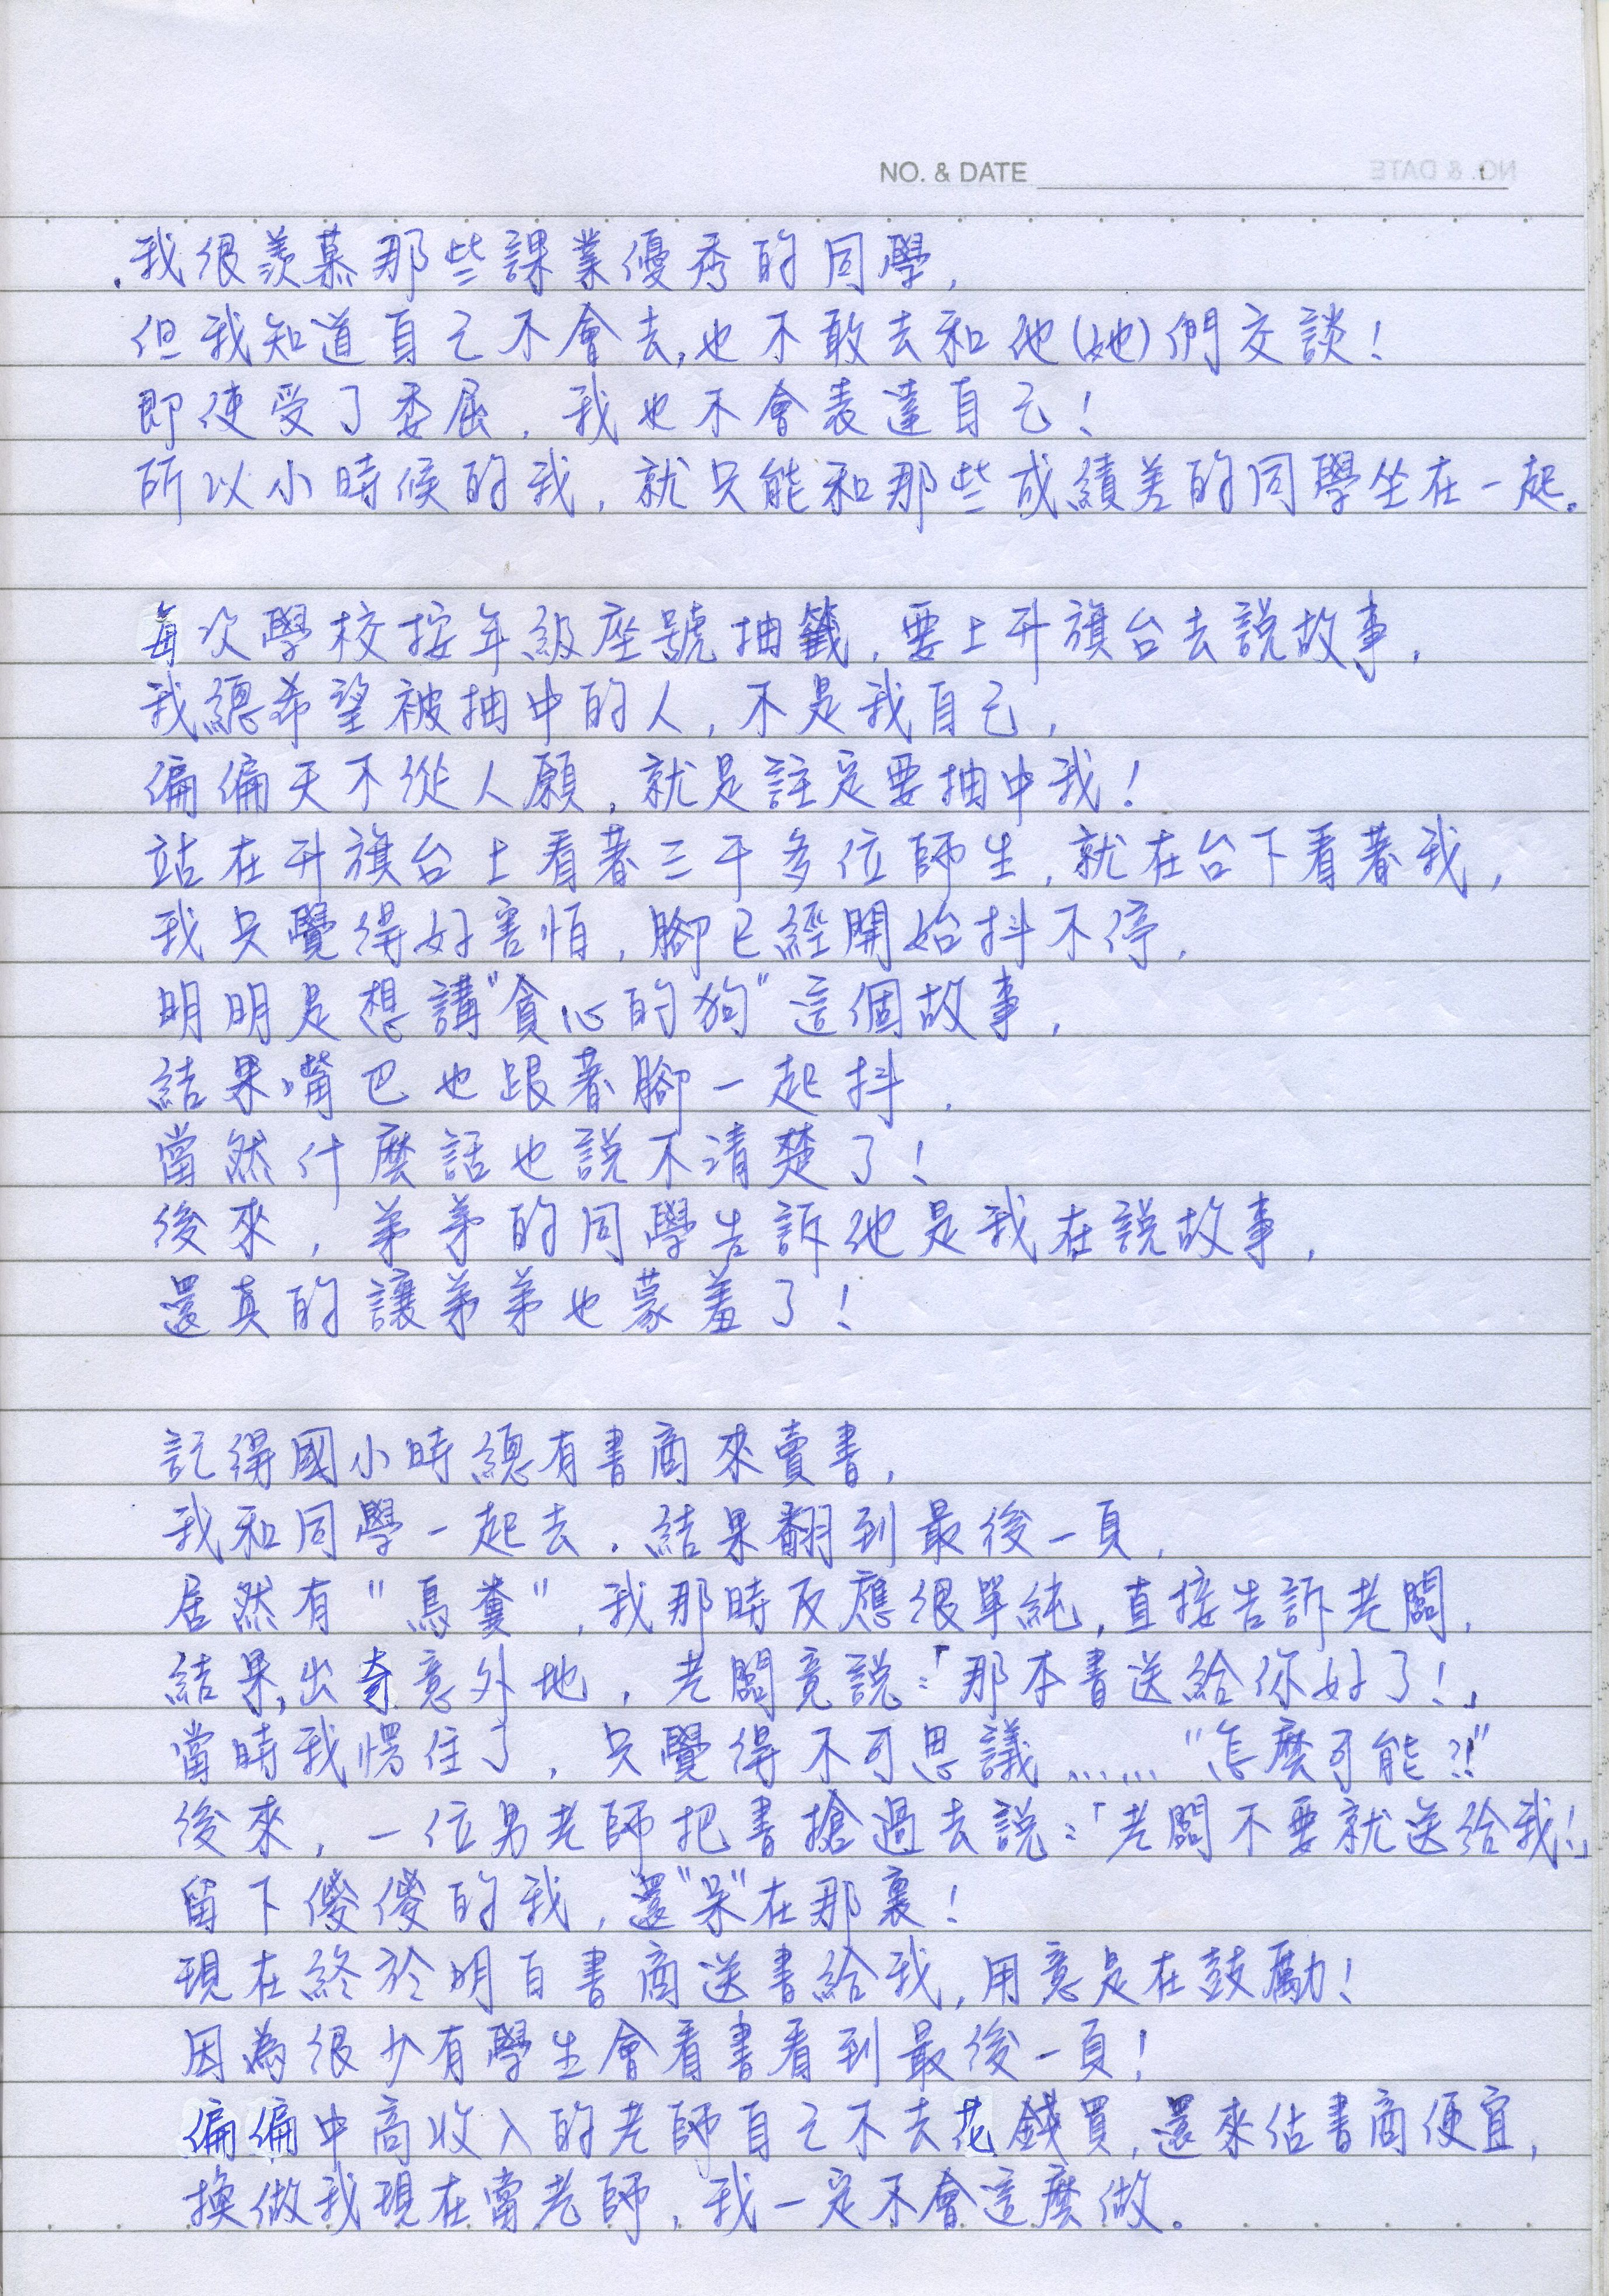 NO. & DATE
我很羨慕那些課業優秀的同學,
但我知道自己不會去,也不敢去和他(她)們交談!
即使受了委屈,我也不會表達自己!
所以小時候的我,就只能和那些成績差的同學坐在一起。
每次學校按年級座號抽籤,要上升旗台去說故事,
我總希望被抽中的人,不是我自己,
偏偏天不從人願,就是註定要抽中我!
站在升旗台上看著三千多位師生,就在台下看著我,
我只覺得好害怕,腳已經開始抖不停,
明明是想講"貪心的狗"這個故事,
結果嘴巴也跟著腳一起抖,
當然什麼話也說不清楚了!
後來,弟弟的同學告訴他是我在說故事,
還真的讓弟弟也蒙羞了!
記得國小時總有書商來賣書,
我和同學一起去,結果翻到最後一頁,
居然有"鳥糞",我那時反應很單純,直接告訴老闆,
結果,出奇意外地,老闆竟說:「那本書送給你好了!」
當時我愣住了,只覺得不可思議……"怎麼可能?!"
後來,一位男老師把書搶過去說:「老闆不要就送給我!」
留下傻傻的我,還"呆"在那裏!
現在終於明白書商送書給我,用意是在鼓勵!
因為很少有學生會看書看到最後一頁!
偏偏中高收入的老師自己不去花錢買,還來佔書商便宜,
換做我現在當老師,我一定不會這麼做。